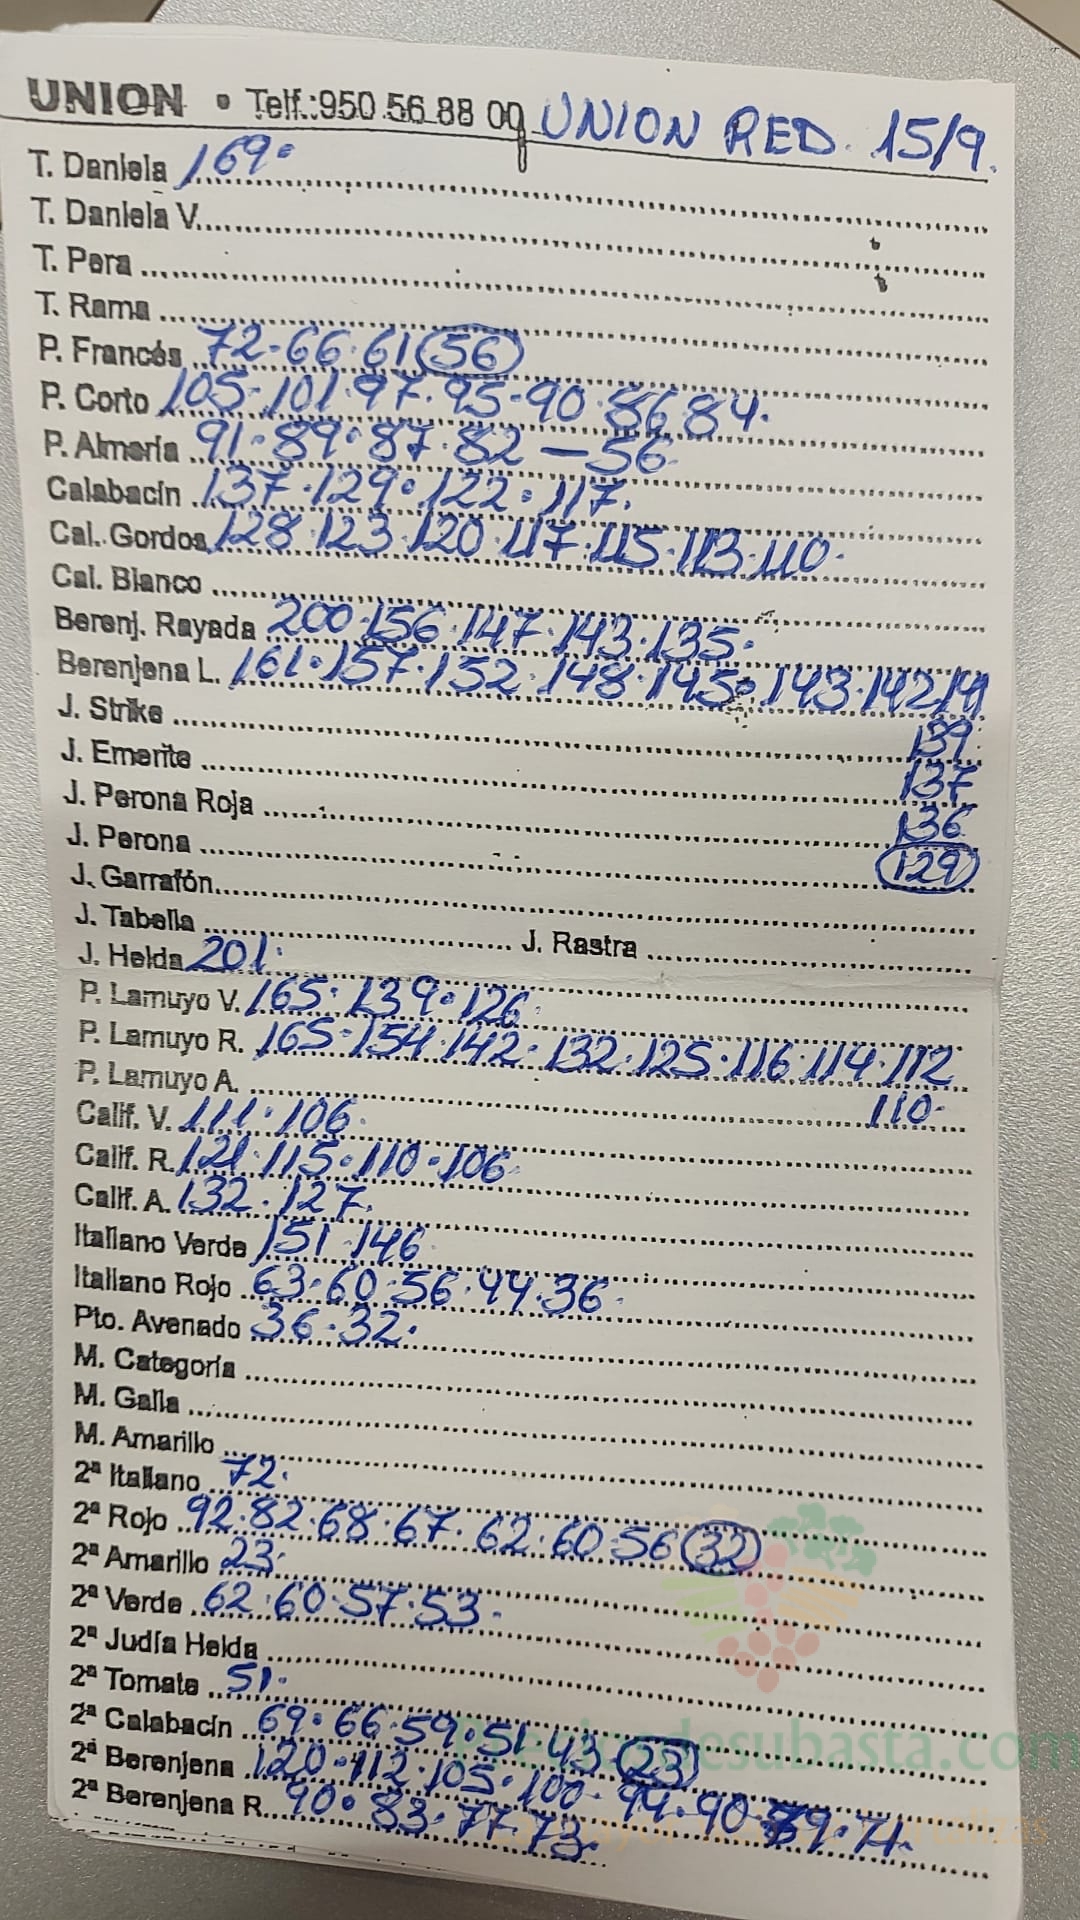 UNION • Telf.:950 56 88 00 UNION RED. 15/9.
T. Daniela 169·
T. Daniela V.
T. Pera
T. Rama
P. Francés 72-66·61 (56)
P. Corto 105-101·97·95-90·86·84·
P. Almería 91·89·87·82 — 56·
Calabacín 137·129·122·117·
Cal. Gordos 128·123·120·117·115·113·110·
Cal. Blanco
Berenj. Rayada 200·156·147·143·135·
Berenjena L. 161·157·152·148·145·143·142
J. Strike 139·
J. Emerite 137
J. Perona Roja 136
J. Perona (129)
J. Garrafón
J. Tabella J. Rastra
J. Helda 201·
P. Lamuyo V. 165·139·126·
P. Lamuyo R. 165·154·142·132·125·116·114·112
P. Lamuyo A. 110·
Calif. V. 111·106·
Calif. R. 121·115·110·106·
Calif. A. 132·127·
Italiano Verde 151·146·
Italiano Rojo 63·60·56·44·36·
Pto. Avenado 36·32·
M. Categoría
M. Galia
M. Amarillo
2ª Italiano 72·
2ª Rojo 92·82·68·67·62·60·56 (32)
2ª Amarillo 23·
2ª Verde 62·60·57·53·
2ª Judía Helda
2ª Tomate 51·
2ª Calabacín 69·66·59·51·43 (23)
2ª Berenjena 120·112·105·100·94·90·79·71·
2ª Berenjena R. 90·83·77·73·